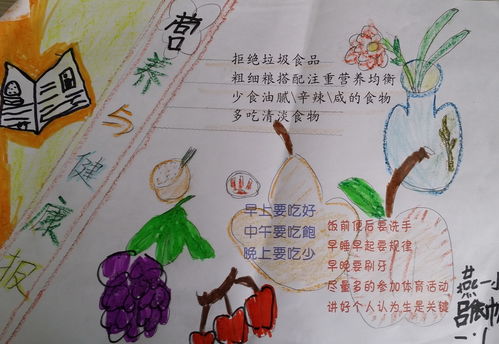 营养与健康报
拒绝垃圾食品
粗细粮搭配注重营养均衡
少食油腻\辛辣\咸的食物
多吃清淡食物
早上要吃好
中午要吃飽
晚上要吃少
饭前便后要洗手
早睡早起要规律
早晚要刷牙
尽量多的参加体育活动
讲好个人认为生是关键
燕一小